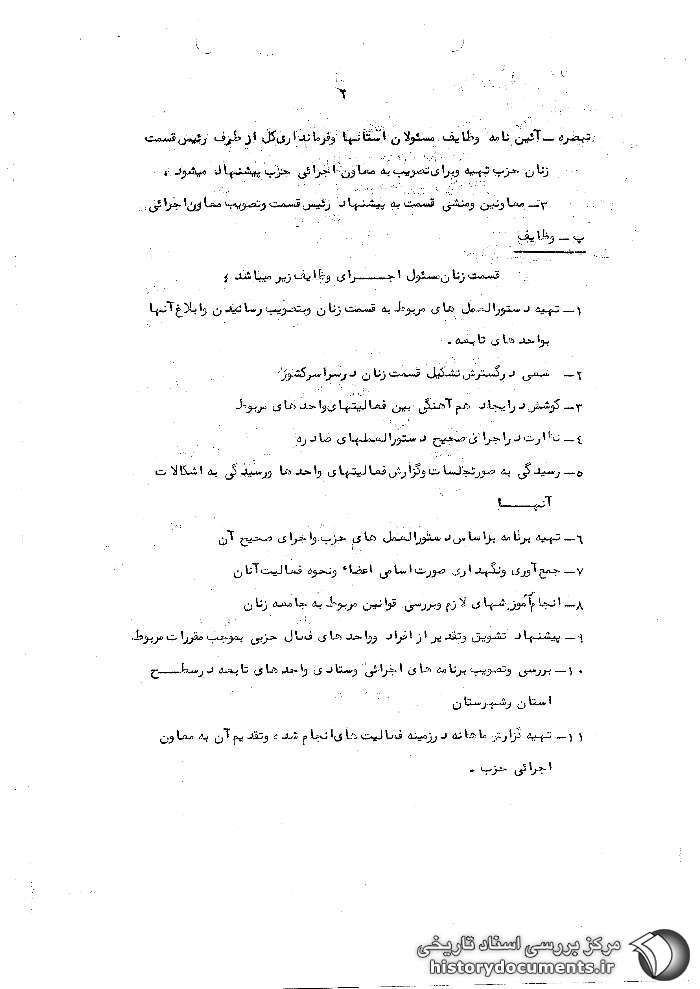 ۲
تبصره ــ آئین نامه وظایف مسئولان استانها وفرمانداریکل از طرف رئیس قسمت
زنان حزب تهیه وبرای تصویب به معاون اجرائی حزب پیشنهاد میشود ؛
۳ــ معاونین ومنشی قسمت به پیشنهاد رئیس قسمت وتصویب معاون اجرائی
پ ــ وظایف
قسمت زنان مسئول اجــــرای وظایف زیر میباشد ؛
۱ــ تهیه دستورالعمل های مربوط به قسمت زنان وبتصویب رسانیدن وابلاغ آنها
بواحد های تابعه .
۲ــ سعی درگسترش تشکیل قسمت زنان درسراسرکشور
۳ــ کوشش درایجاد هم آهنگی بین فعالیتهای واحد های مربوط
٤ــ نظارت دراجرای صحیح دستورالعملهای صادره
٥ــ رسیدگی به صورتجلسات وگزارش فعالیتهای واحد ها ورسیدگی به اشکالات
آنهــــا
٦ــ تهیه برنامه براساس دستورالعمل های حزب واجرای صحیح آن
۷ــ جمع آوری ونگهداری صورت اسامی اعضاء ونحوه فعالیت آنان
۸ــ انجام آموزشهای لازم وبررسی قوانین مربوط به جامعه زنان
۹ــ پیشنهاد تشویق وتقدیر از افراد وواحد های فعال حزبی بموجب مقررات مربوط
۱۰ــ بررسی وتصویب برنامه های اجرائی وستادی واحد های تابعه درسطـــح
استان وشهرستان
۱۱ــ تهیه گزارش ماهانه درزمینه فعالیت های انجام شده وتقدیم آن به معاون
اجرائی حزب .
مرکز بررسی اسناد تاریخی
historydocuments.ir